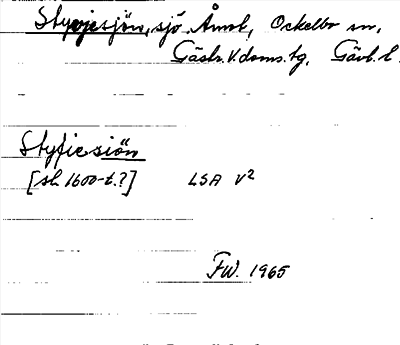 Styvjesjön, sjö Åmot, Ockelbo sn,
Gästr. V. doms. tg, Gävl. l.
Styfiesiön
[sl. 1600-t.?] LSA V2
FW. 1965